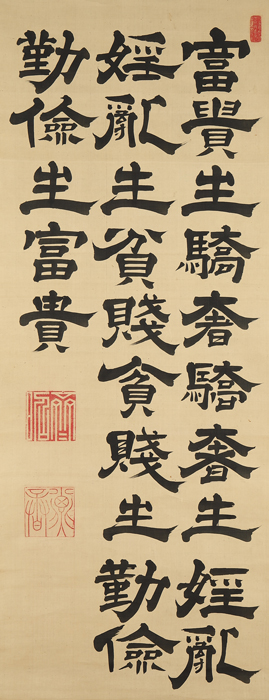 富貴生驕奢驕奢生婬亂
婬亂生貧賤貧賤生勤儉
勤儉生富貴